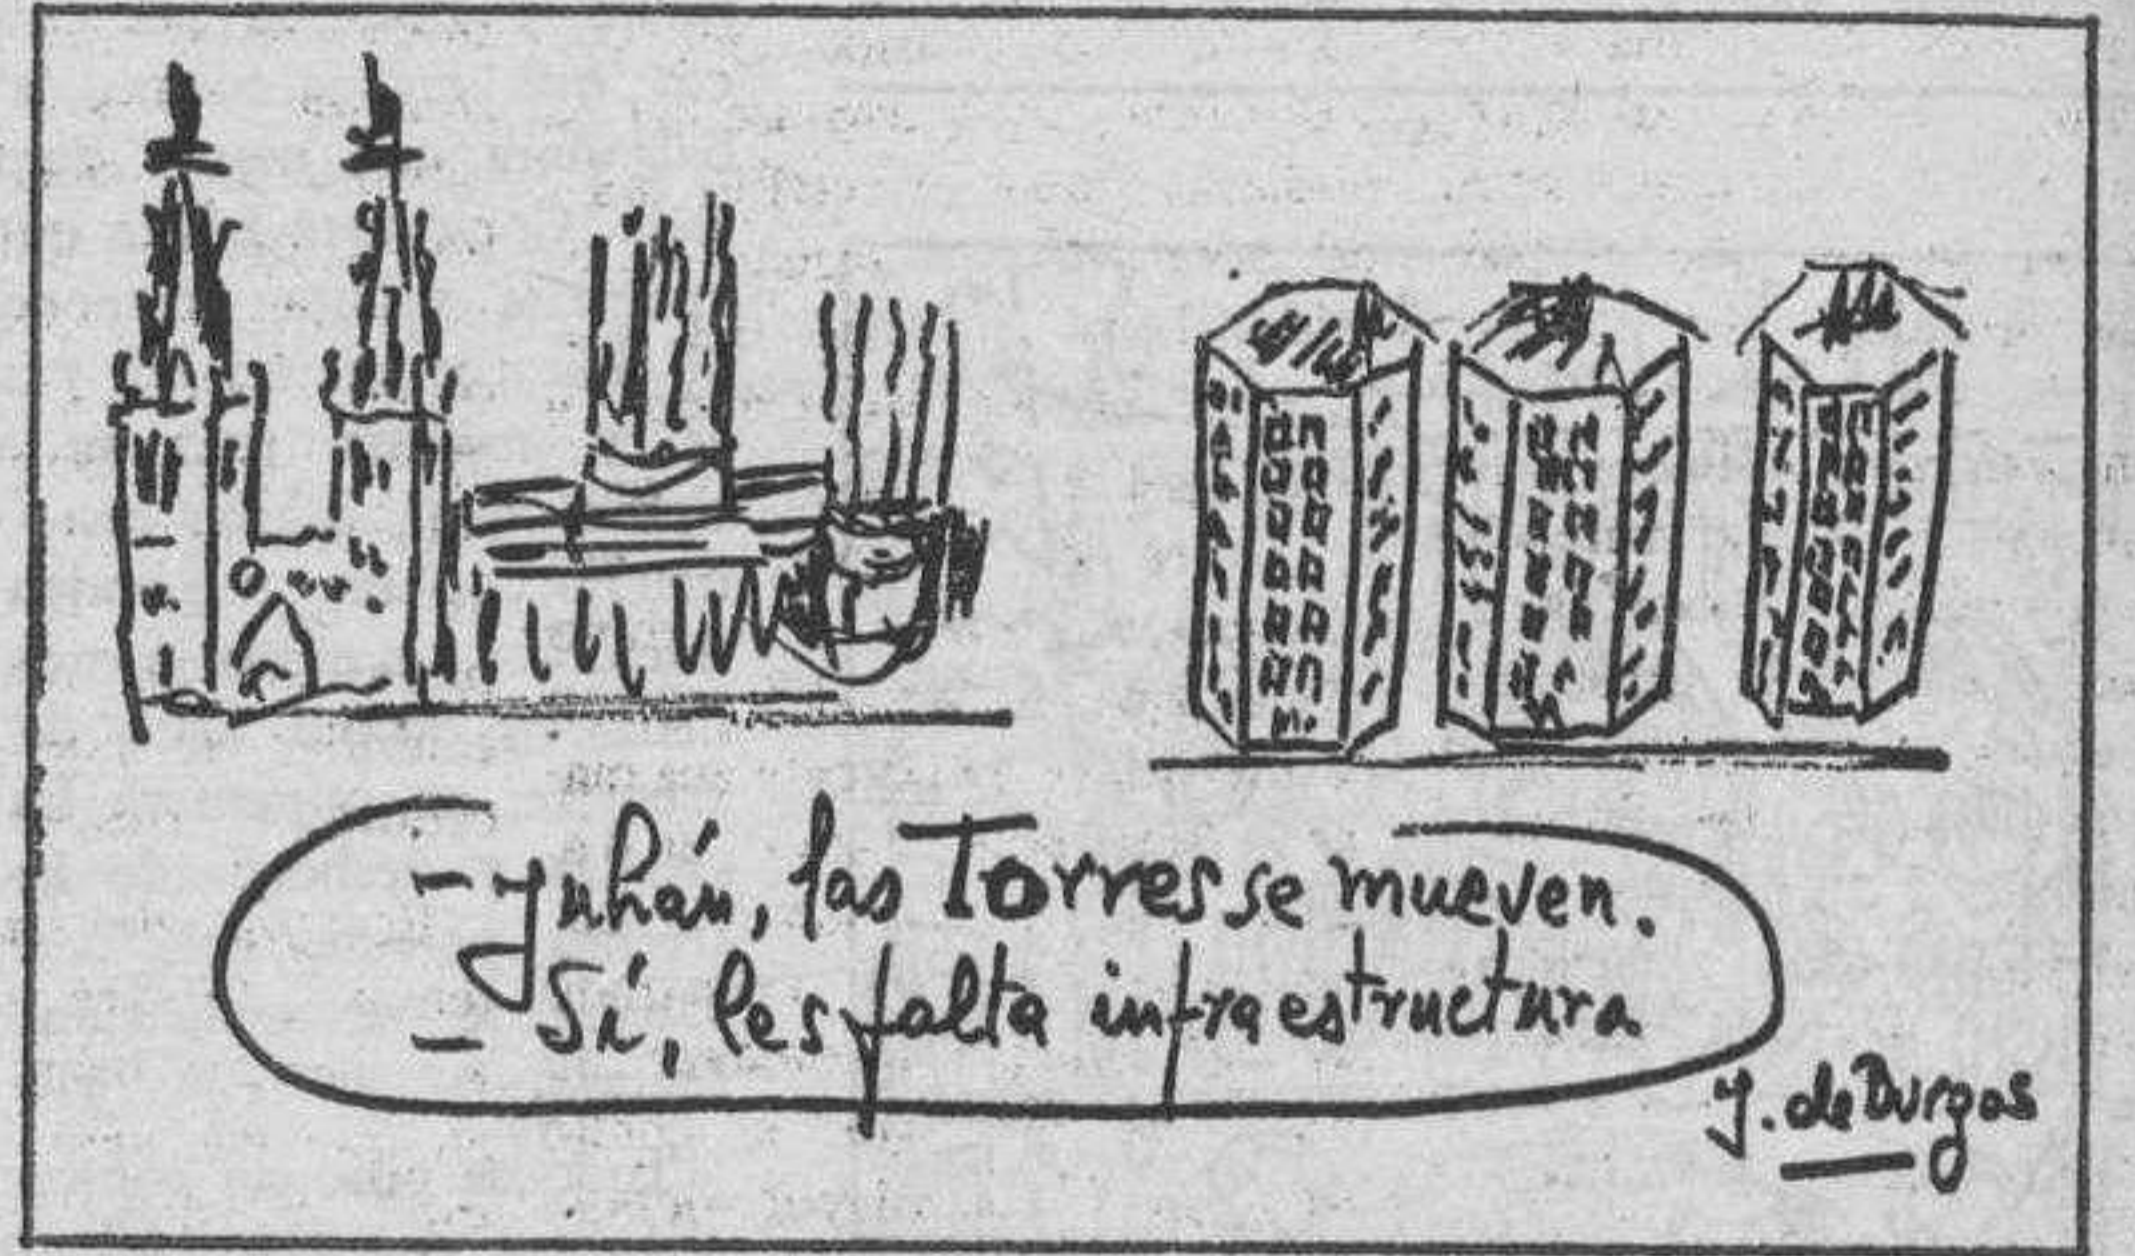 - Juhán, las Torres se mueven.
- Sí, les falta infraestructura
J. de Burgos